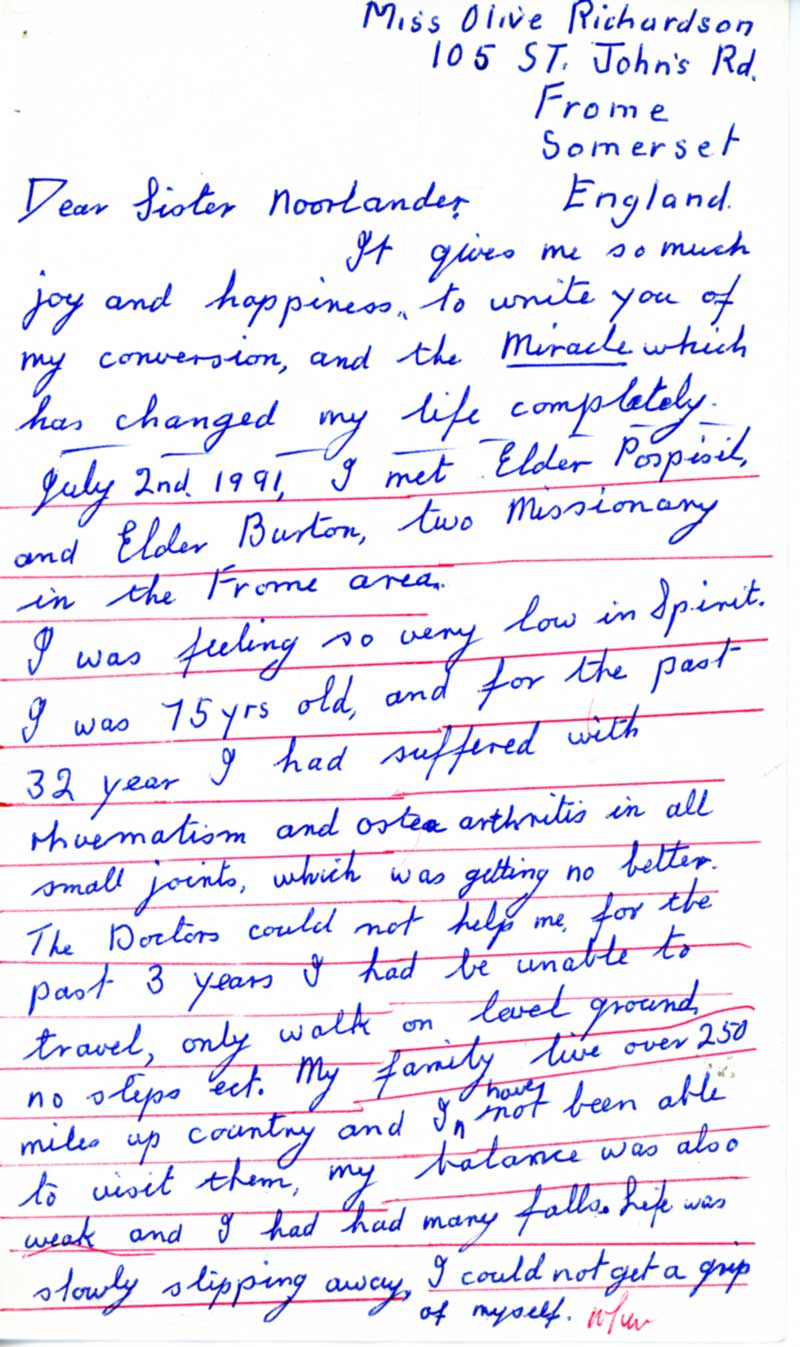 Miss Olive Richardson
105 ST. John's Rd.
Frome
Somerset
Dear Sister Noorlander, England.
It gives me so much
joy and happiness, to write you of
my conversion, and the Miracle which
has changed my life completely.
July 2nd. 1991, I met Elder Pospisil,
and Elder Burton, two Missionary
in the Frome area.
I was feeling so very low in Spirit.
I was 75 yrs old, and for the past
32 year I had suffered with
rhuematism and ostea arthritis in all
small joints, which was getting no better.
The Doctors could not help me, for the
past 3 years I had be unable to
travel, only walk on level ground,
no steps ect. My family live over 250
miles up country and I have not been able
to visit them, my balance was also
weak and I had had many falls. Life was
slowly slipping away, I could not get a grip
of myself.